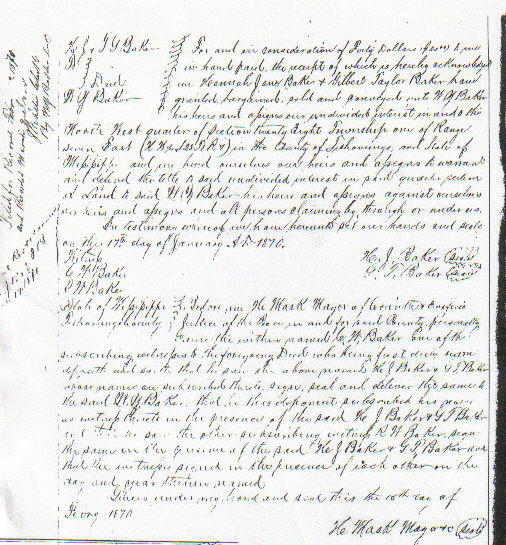 H. J & T G Baker
For and in consideration of Forty Dollars to me
in hand paid, the receipt of which is hereby acknowledged
Deed
we Hannah Jane Baker & Gilbert Taylor Baker have
W Y Baker
granted, bargained, sold and conveyed unto W Y Baker
his heirs and assigns our undivided interest in and to the
North West quarter of Section twenty Eight Township one of Range
Seven East in the County of Tishomingo, and State of
Mississippi and we bind ourselves our heirs and assigns to warrant
and defend the title to said undivided interest in said quarter section
of Land to said W Y Baker his heirs and assigns against ourselves
our heirs and assigns and all persons claiming by through or under us.
In testimony whereof we have hereunto set our hands and seals
on this 17th day of January A D 1870.
Witness
H. J. Baker (Seal)
C W Baker
G. T. Baker (Seal)
R W Baker
State of Mississippi
Before me H Mask Mayor of Corinth & Exofficio
Tishomingo County
Justice of the Peace in and for said County, personally
Came the within named C. W. Baker one of the
subscribing witnesses to the foregoing Deed who being first duly sworn
deposeth and saith that he saw the above named H J Baker & G T Baker
whose names are subscribed thereto, sign, seal and deliver the same to
the said W Y Baker. that he this deponent subscribed his name
as witness thereto in the presence of the said H J Baker & G T Baker
and that he saw the other subscribing witness R W Baker, sign
the same in the presence of the said H J Baker & G T Baker and
that the witnesses signed in the presence of each other on the
day and year therein named
Given under my hand and seal this the 10th day of
1870
H Mask Mayor &c (Seal)